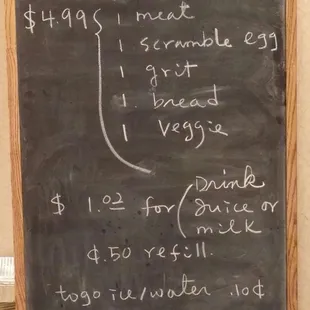 $4.99 1 meat
1 scramble egg
1 grit
1 bread
1 veggie
Drink
$ 1.02 for Juice or
milk
¢.50 refill.
togo ice/water .10¢